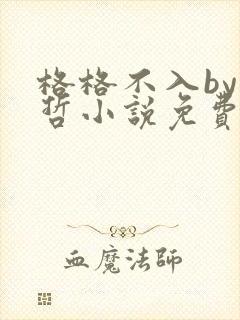 格格不入by
哲小說免費
血魔法師